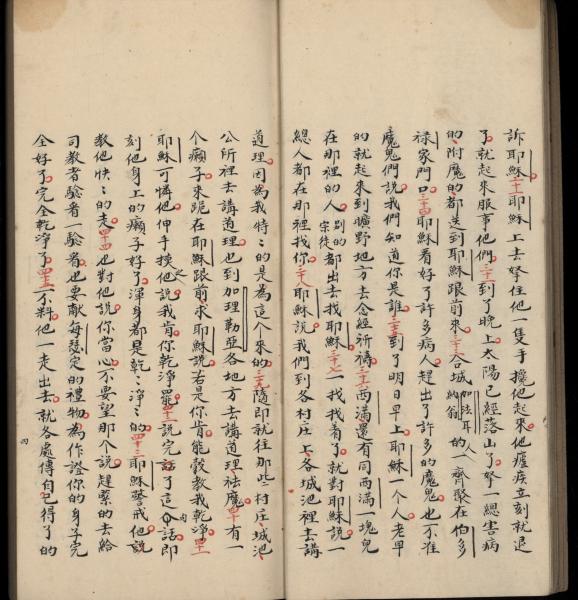 訴耶穌三十一耶穌上去拏住他一隻手攙他起來他瘧疾立刻就退
了就起來服事他們三十二到了晚上太陽已經落山了拏一總害病
的附魔的都送到耶穌跟前來三十三合城加法耳納翁的人一齊聚在伯多
祿家門口三十四耶穌看好了許多病人趕出了許多的魔鬼也不准
魔鬼們說我們知道你是誰三十五到了明日早上耶穌一個人老早
的就起來到曠野地方去念經祈禱三十六西滿還有同西滿一塊兒
在那裡的人別的宗徒都出去找耶穌三十七一找找着了就對耶穌說一
總人都在那裡找你三十八耶穌說我們到各村庄上各城池裡去講
道理因為我特特的是為這个來的三十九隨即就往那些村庄城池
公所裡去講道理也到加理勒亞各地方去講道理祛魔四十有一
个癩子來跪在耶穌跟前求耶穌說若是你肯能彀教我乾淨四十一
耶穌可憐他伸手挨他說我肯你乾淨罷四十二說完話了這个話即
刻他身上的癩子好了渾身都是乾乾淨淨的四十三耶穌警戒他說
教他快快的走四十四也對他說你當心不要望那个說趕緊的去給
司教者驗看一驗看也要獻每瑟定的禮物為作證你的身子完
全好了完全乾淨了四十五不料他一走出去就各處傳自己得了的
四